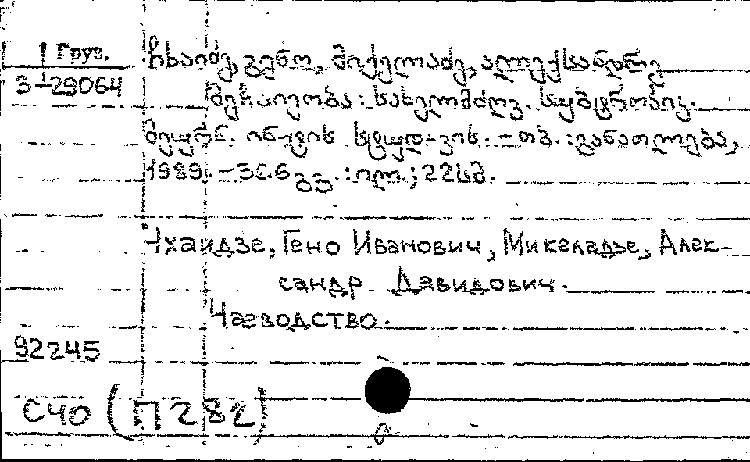 1 Груз.
3-29064
ჩხაიძე, გენო, მიქელაძე, ალექსანდრე
მეჩაიეობა: სახელმძღვ. სუბტროპიკ.
მეურნ. ინ-ტის სტუდ-ვის. - თბ.: განათლება,
1989. - 366 გვ.: ილ.; 22სმ.
Чхаидзе, Гено Иванович, Микеладзе, Алек-
сандр Давидович.
Чаеводство.
92245
С40 (П282)